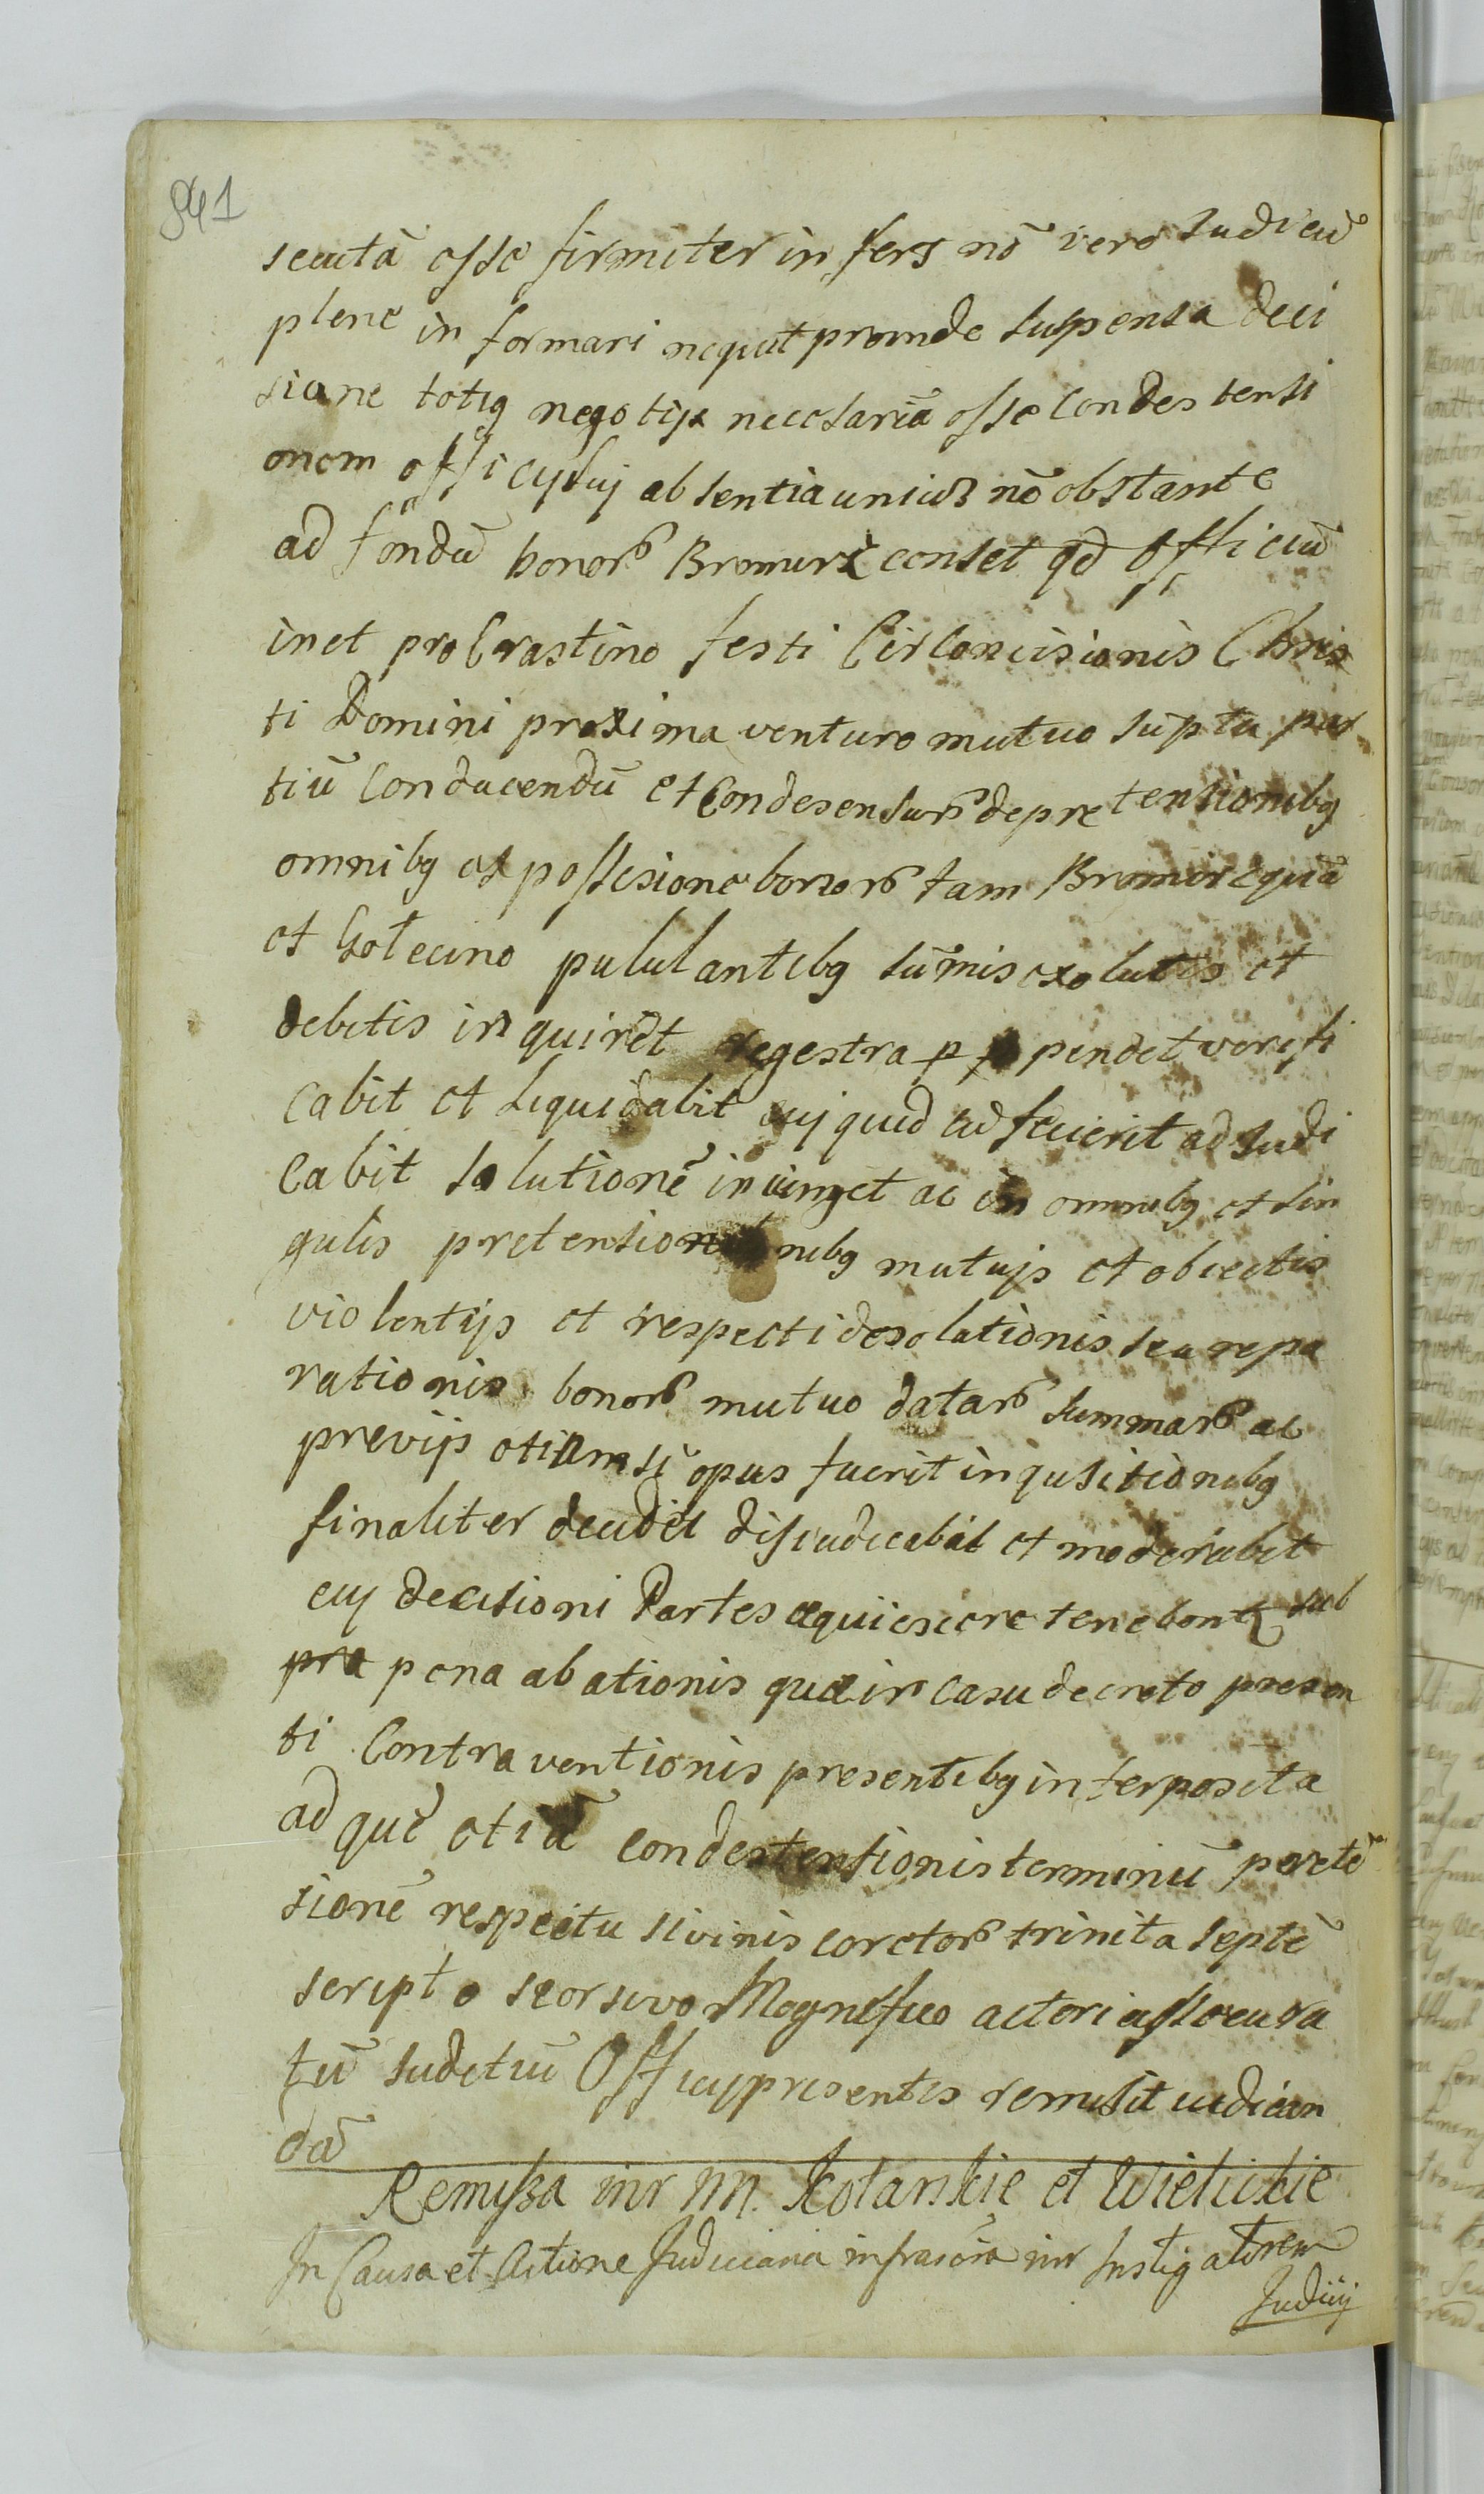 841
secutā esse firmiter infers nō vero Judiciū
plene informari nequit proinde suspensa deci
sione totiq negotij necesariā esse Condestensi
onem officij sui absentia unius nō obstante
ad fondū bonorȩ Bromirz censet qd officiū
inet pro Crastino festi Circoncisionis Chris
ti Domini proxima venturo mutuo suptu par
tiū Conducendū et Condesensurȩ de pretensionibq
omnibq et possesione bonorȩ tam Bromirz quā
et Gołecino pululantibq sūmis exolutis et
debitis inquiret regestra p pendet verifi
cabit et Liquidabit cuj quid adfuierit adJudi
Cabit solutionē iniunget ac in omnibq et sin
gulis pretensio nibq mutujs et obiectis
violentijs et respecti desolationis seu repa
rationis bonorȩ mutuo datarȩ summarȩ ac
previjs etiam si opus fuerit inqusitionibq
finaliter decidet disiudicabit et moderabit
cuj decisioni Partes acquiescere tenebontz sub
pra pena abationis quæ in Casu decreto presen
ti Contraventionis presentibq interposita
ad quē etiā condestensionis terminū pretē
sionē respectu sivinis coretorȩ trinita septē
scripto seorsivo Magnifico actori assecura
tū Juditiū Officij presentis remisit iudican
dā
Remissa intr MM. Kotarskie et Wiełickie
In Causa et Actione Judiciaria infrascra intr Instigatorem
Judicij